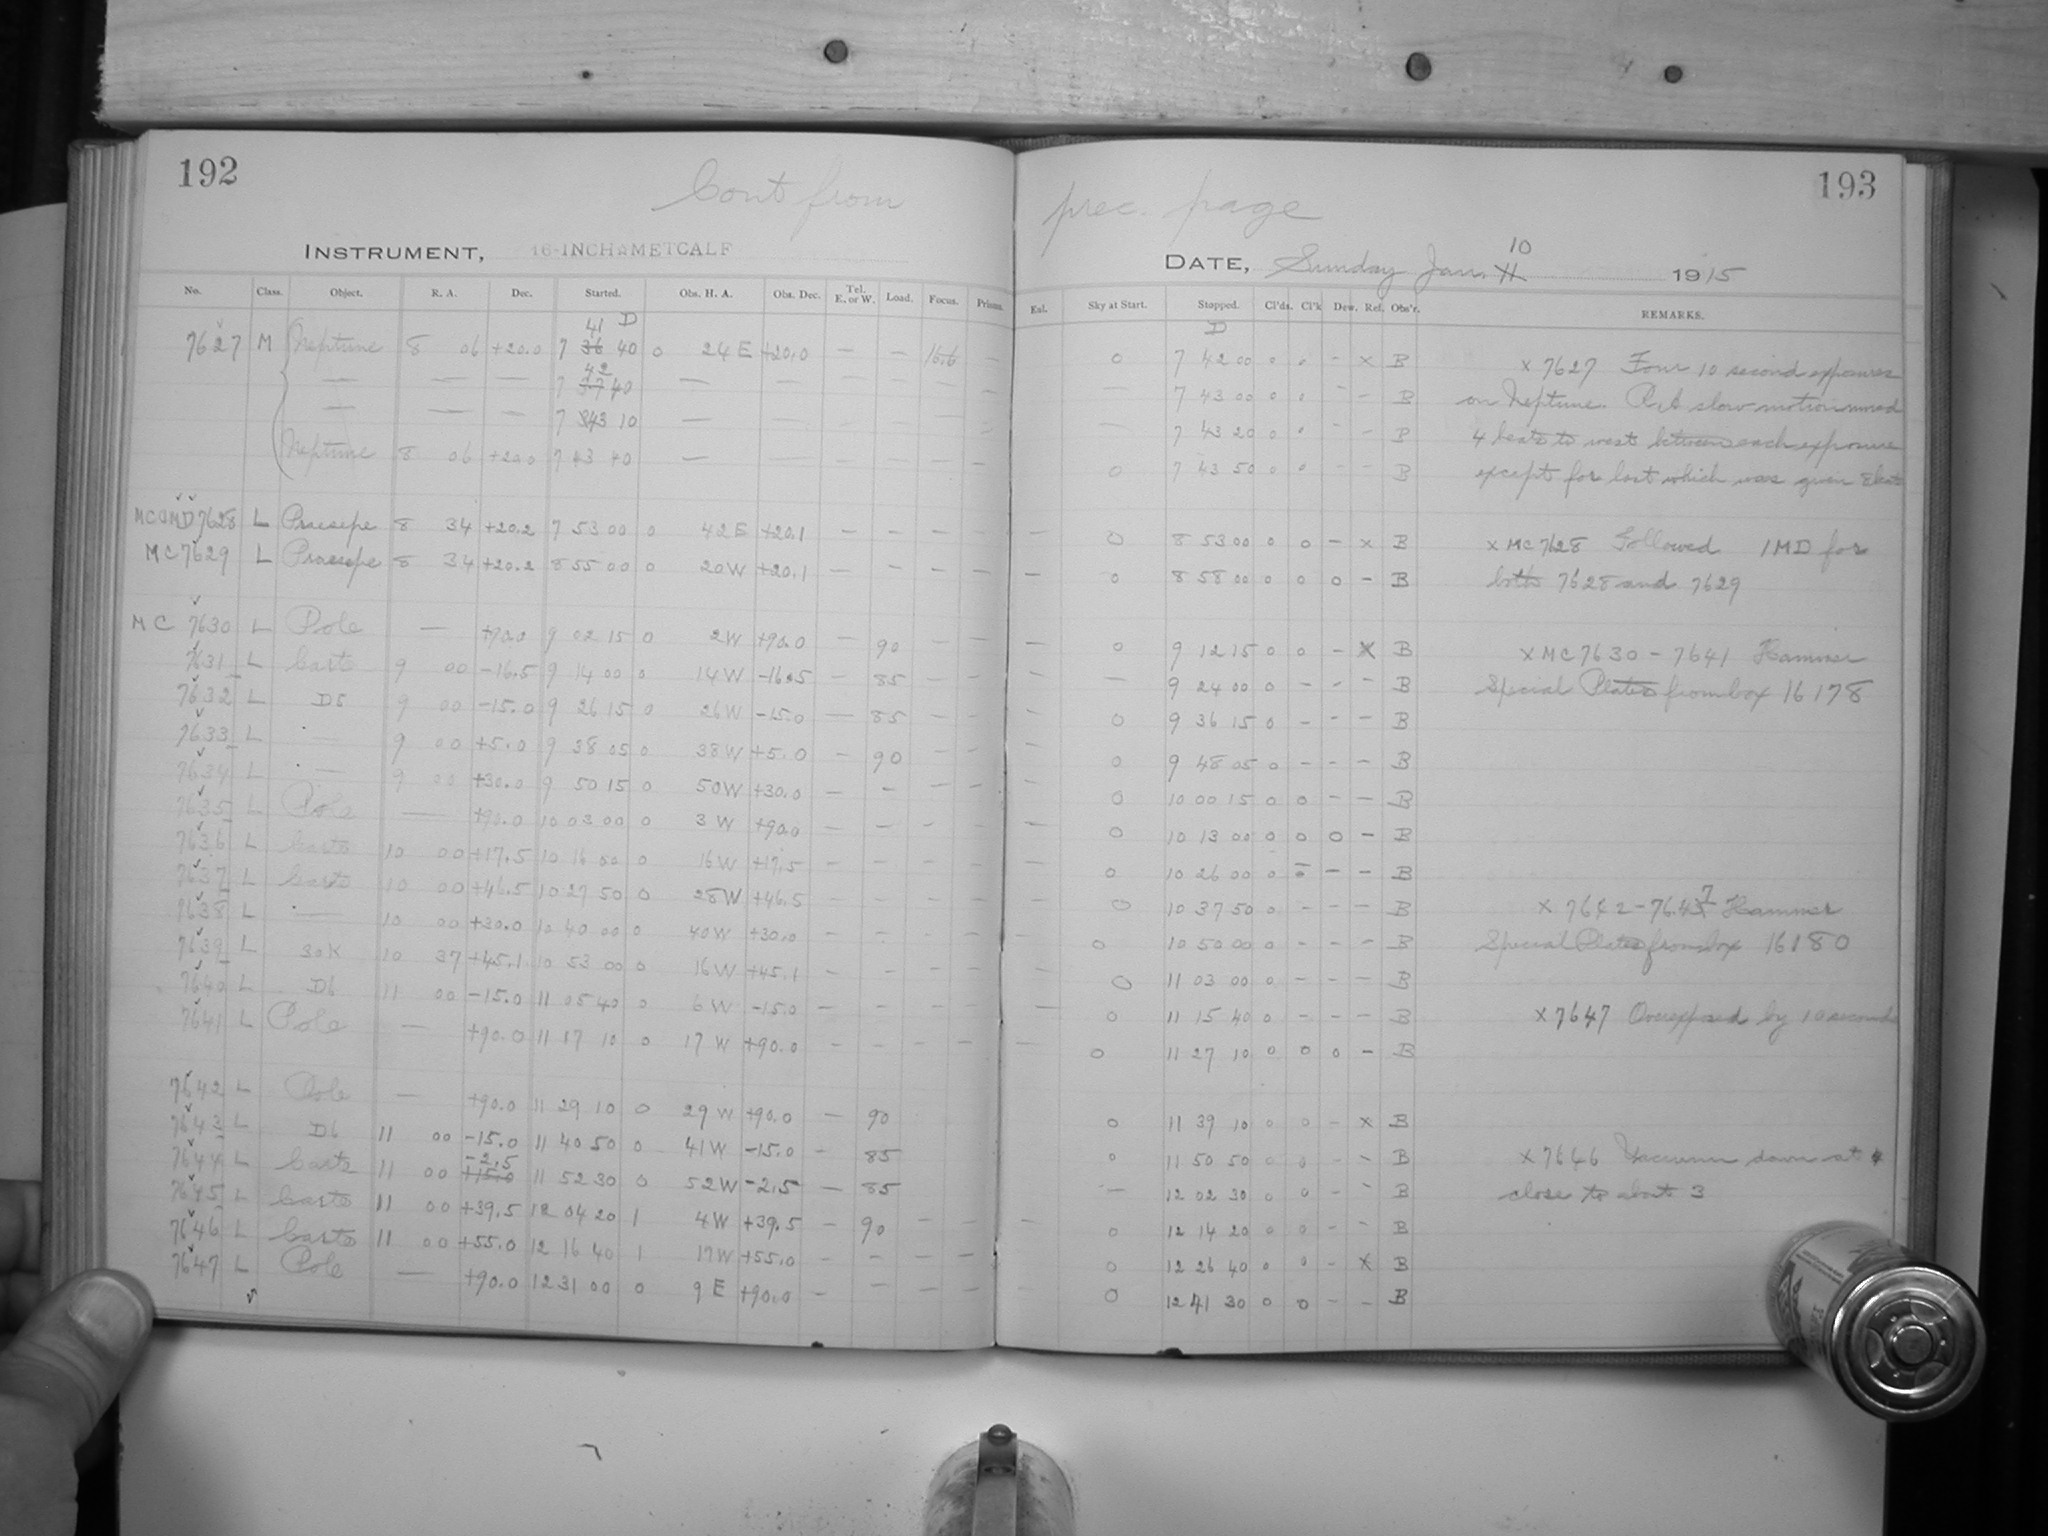 192
193
Cont from prec. page
INSTRUMENT, 16-INCH METCALF
DATE, Sunday Jan. 11 10 1915
No. Class. Object. R. A. Dec. Started. Obs. H. A. Obs. Dec. Tel. E. or W. Load. Focus. Prisms. Eal. Sky at Start. Stopped. Cl'ds. Cl'k Dew. Ref. Obs'r. REMARKS.
41 D D
7627 M Neptune 8 06 +20.0 7 36 40 0 24 E +20.0 — — 16.6 — 0 7 42 00 0 0 - x B x 7627 Four 10 second exposures
42
— — — 7 37 40 — — — — — — — 7 43 00 0 0 - - B on Neptune. R.A slow motion moved
— — — 7 43 10 — — — — — — — 7 43 20 0 0 - - B 4 beats to west between each exposure
Neptune 8 06 +20.0 7 43 40 — — — — — — 0 7 43 50 0 0 - - B except for last which was given 8 beats
MC 7628 L Praesepe 8 34 +20.2 7 53 00 0 42 E +20.1 — — — — — 0 8 53 00 0 0 - x B x MC 7628 Followed 1MD for
MC 7629 L Praesepe 8 34 +20.2 8 55 00 0 20 W +20.1 — — — — — 0 8 58 00 0 0 0 - B both 7628 and 7629
MC 7630 L Pole — +90.0 9 02 15 0 2 W +90.0 — 90 — — — 0 9 12 15 0 0 - x B x MC 7630 - 7641 Hammer
7631 L Carte 9 00 -16.5 9 14 00 0 14 W -16.5 — 85 — — — — 9 24 00 0 - - - B Special Plates from box 16178
7632 L D5 9 00 -15.0 9 26 15 0 26 W -15.0 — 85 — — — 0 9 36 15 0 - - - B
7633 L — 9 00 +5.0 9 38 05 0 38 W +5.0 — 90 — — — 0 9 48 05 0 - - - B
7634 L — 9 00 +30.0 9 50 15 0 50 W +30.0 — — — — — 0 10 00 15 0 0 - - B
7635 L Pole — +90.0 10 03 00 0 3 W +90.0 — — — — — 0 10 13 00 0 0 0 - B
7636 L Carte 10 00 +17.5 10 16 00 0 16 W +17.5 — — — — — 0 10 26 00 0 - - - B
7637 L Carte 10 00 +46.5 10 27 50 0 28 W +46.5 — — — — — 0 10 37 50 0 - - - B x 7642 - 7647 Hammer
7638 L — 10 00 +30.0 10 40 00 0 40 W +30.0 — — — — — 0 10 50 00 0 - - - B Special Plates from box 16180
7639 L 30K 10 37 +45.1 10 53 00 0 16 W +45.1 — — — — — 0 11 03 00 0 - - - B
7640 L D6 11 00 -15.0 11 05 40 0 6 W -15.0 — — — — — 0 11 15 40 0 - - - B x 7647 Overexposed by 10 seconds
7641 L Pole — +90.0 11 17 10 0 17 W +90.0 — — — — — 0 11 27 10 0 0 0 - B
7642 L Pole — +90.0 11 29 10 0 29 W +90.0 — 90 0 11 39 10 0 0 - x B
7643 L D6 11 00 -15.0 11 40 50 0 41 W -15.0 - 85 0 11 50 50 0 0 - - B x 7646 Vacuum down at
-2.5
7644 L Carte 11 00 +15.0 11 52 30 0 52 W -2.5 — 85 — 12 02 30 0 0 - - B close to about 3
7645 L Carte 11 00 +39.5 12 04 20 1 4 W +39.5 — 90 — — — 0 12 14 20 0 0 - - B
7646 L Carte 11 00 +55.0 12 16 40 1 17 W +55.0 — — — — — 0 12 26 40 0 0 - x B
7647 L Pole — +90.0 12 31 00 0 9 E +90.0 — — — — — 0 12 41 30 0 0 - - B